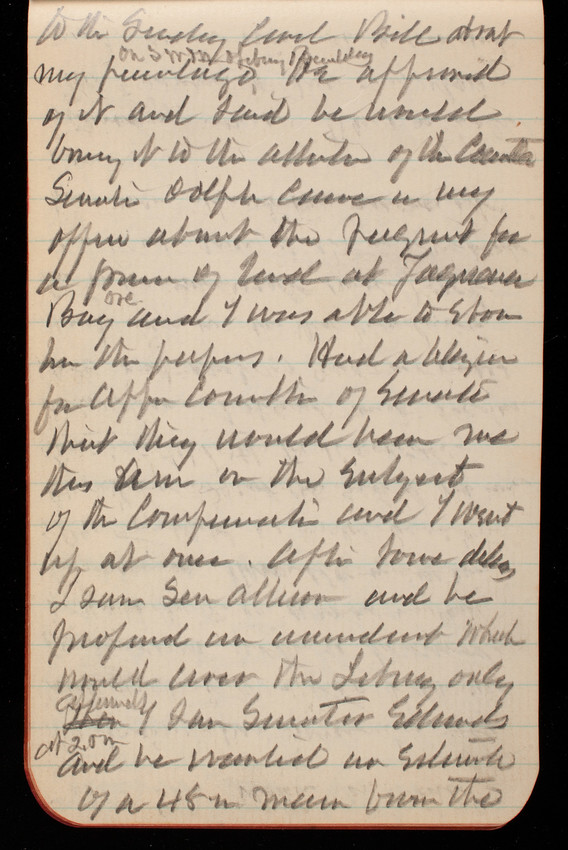 to the Sundry Civil Bill about
my privilege, He approved
of it and said he would
bring it to the attention of the Committee
Senator Dolph came in my
office about the
of land at Yaquina
Bay Ore and I was able to show
him the papers. Had a telegram
from Appn Committee of Senate
that they would hear me
this am on the subject
of the Compensation and I went
up at once. After some delay
I saw Sen Allison and he
proposed an amendment which
would cover the only
afterwards I saw Senator Edmunds
at 2.0
and he wanted an Estimate
of a 48 in main from the